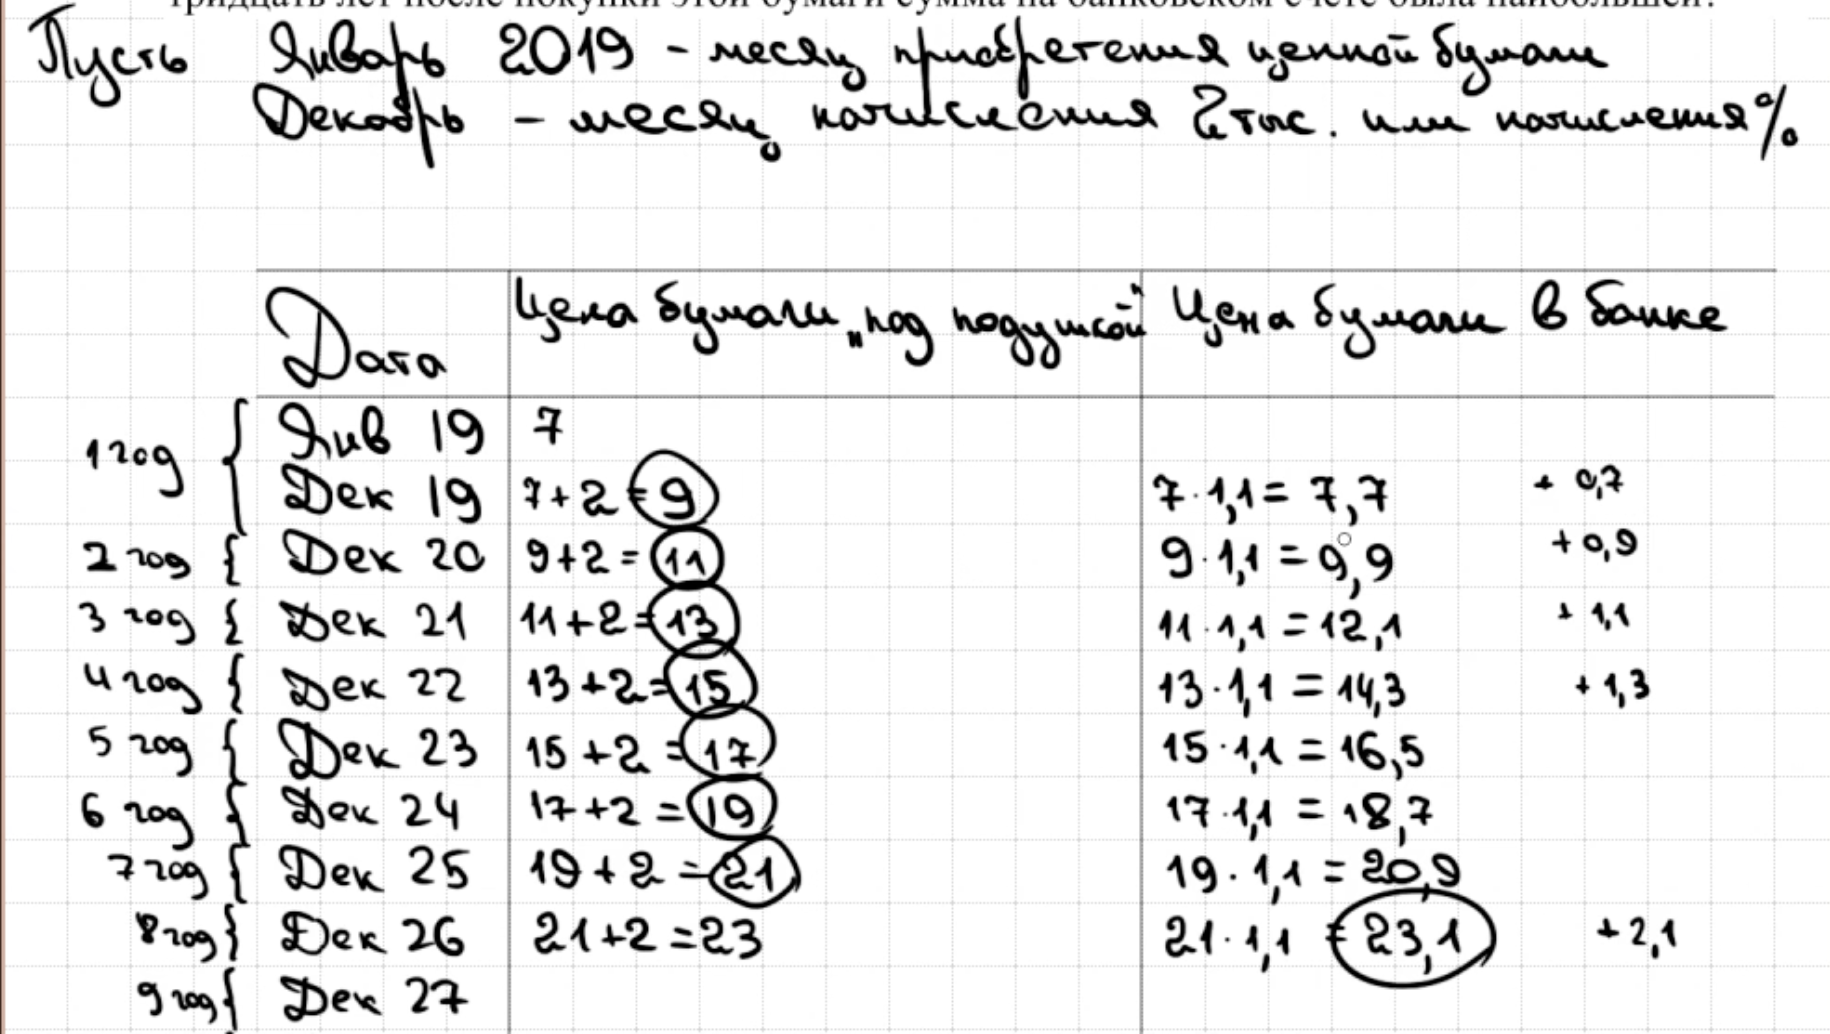 тридцать лет после покупки этой бумаги сумма на банковском счете была наибольшей?
Пусть Январь 2019 - месяц приобретения ценной бумаги
Декабрь - месяц начисления 2 тыс. или начисления %
Дата Цена бумаги „под подушкой" Цена бумаги в банке
1 год { Янв 19 7
Дек 19 7+2=9 7·1,1=7,7 +0,7
2 год { Дек 20 9+2=11 9·1,1=9,9 +0,9
3 год { Дек 21 11+2=13 11·1,1=12,1 +1,1
4 год { Дек 22 13+2=15 13·1,1=14,3 +1,3
5 год { Дек 23 15+2=17 15·1,1=16,5
6 год { Дек 24 17+2=19 17·1,1=18,7
7 год { Дек 25 19+2=21 19·1,1=20,9
8 год { Дек 26 21+2=23 21·1,1=23,1 +2,1
9 год { Дек 27